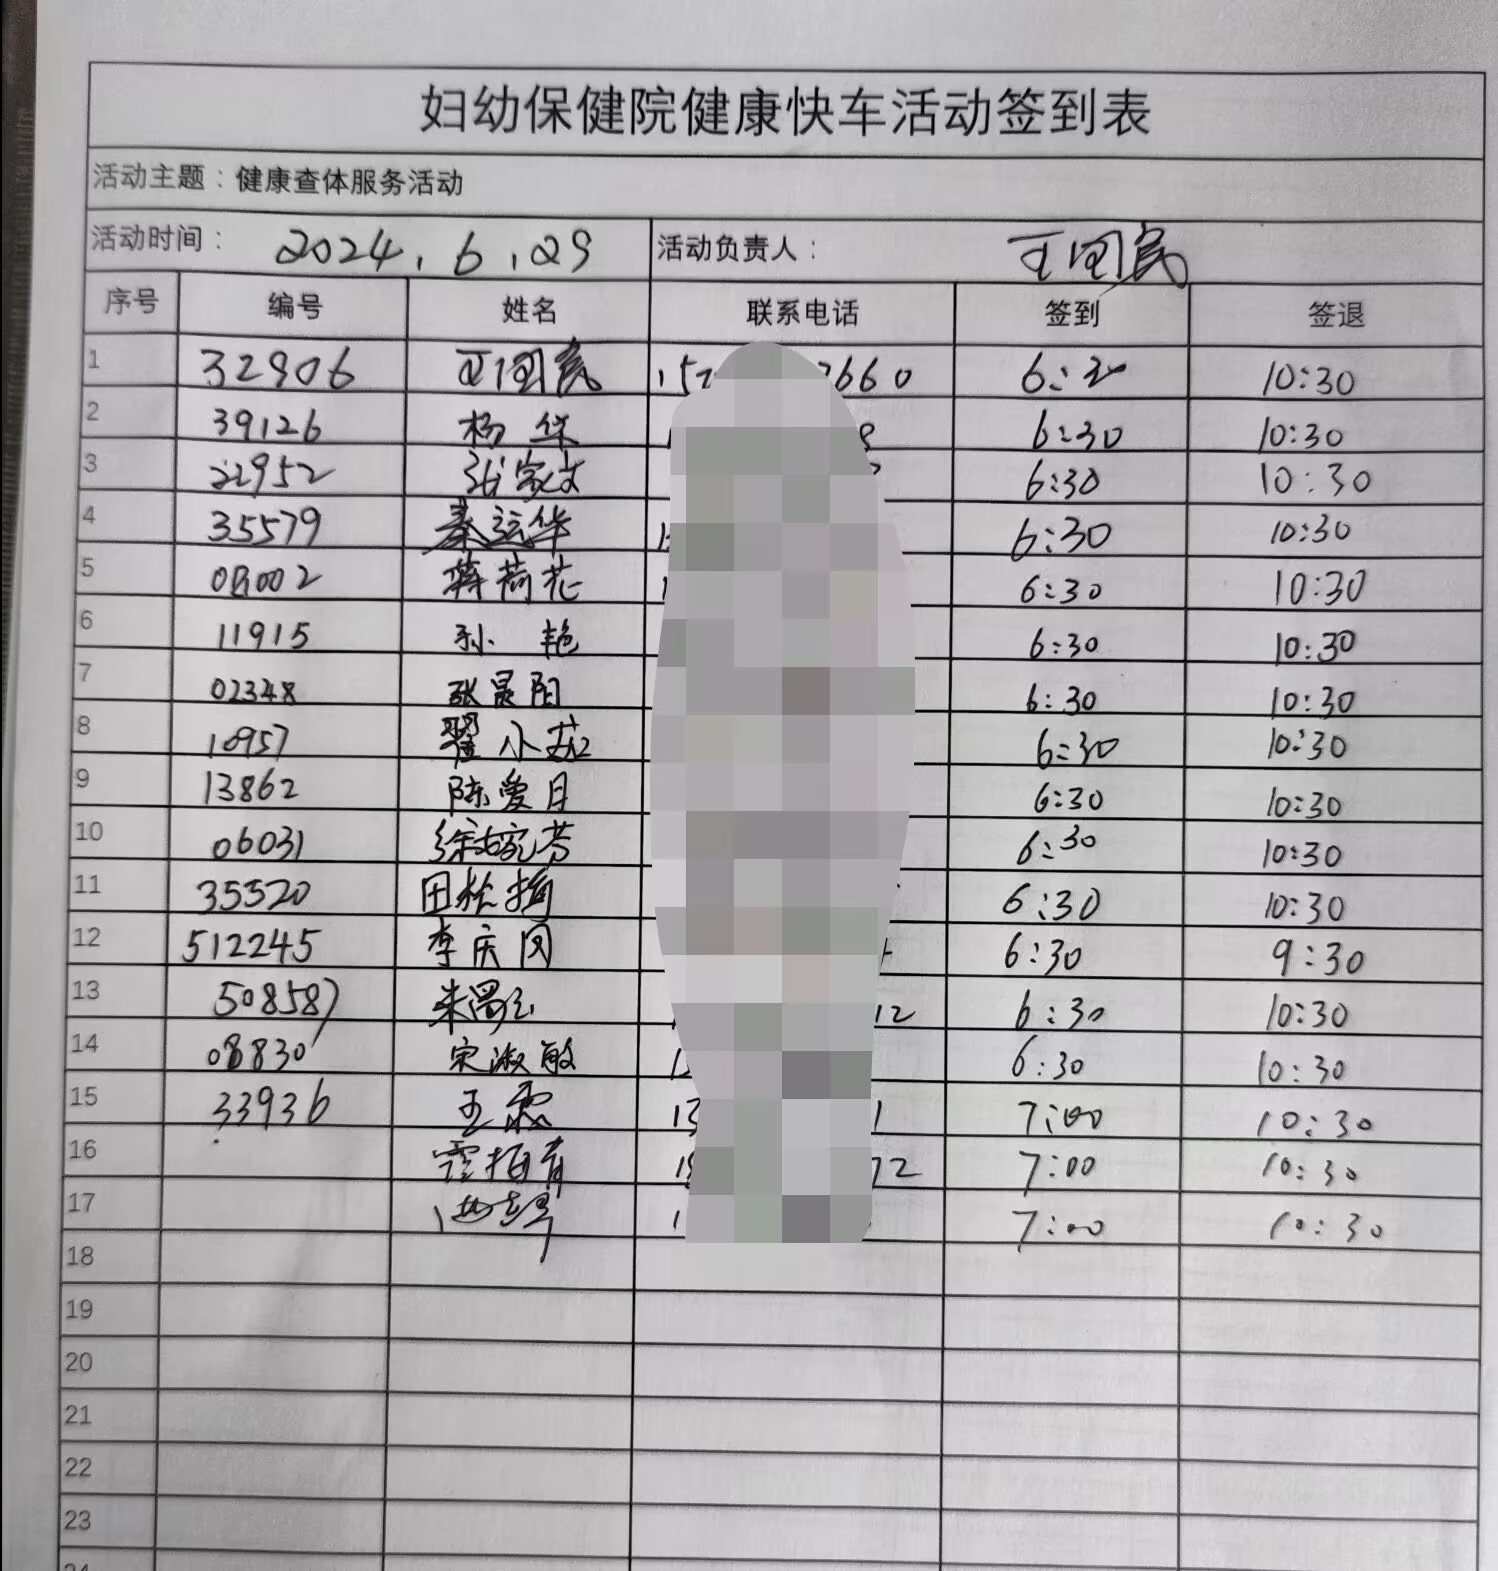 妇幼保健院健康快车活动签到表
活动主题：健康查体服务活动
活动时间： 2024.6.29 活动负责人： 王国民
序号 编号 姓名 联系电话 签到 签退
1 32906 王国民 660 6:30 10:30
2 39126 杨华 6:30 10:30
3 22952 张家文 6:30 10:30
4 35579 秦运华 6:30 10:30
5 09002 蒋荷花 6:30 10:30
6 11915 孙艳 6:30 10:30
7 02348 张晨阳 6:30 10:30
8 10957 翟小 6:30 10:30
9 13862 陈爱月 6:30 10:30
10 06031 徐 芳 6:30 10:30
11 35520 田桂梅 6:30 10:30
12 512245 李庆 6:30 9:30
13 508587 朱 12 6:30 10:30
14 08830 宋淑敏 6:30 10:30
15 33936 王霞 13 1 7:00 10:30
16 72 7:00 10:30
17 7:00 10:30
18
19
20
21
22
23